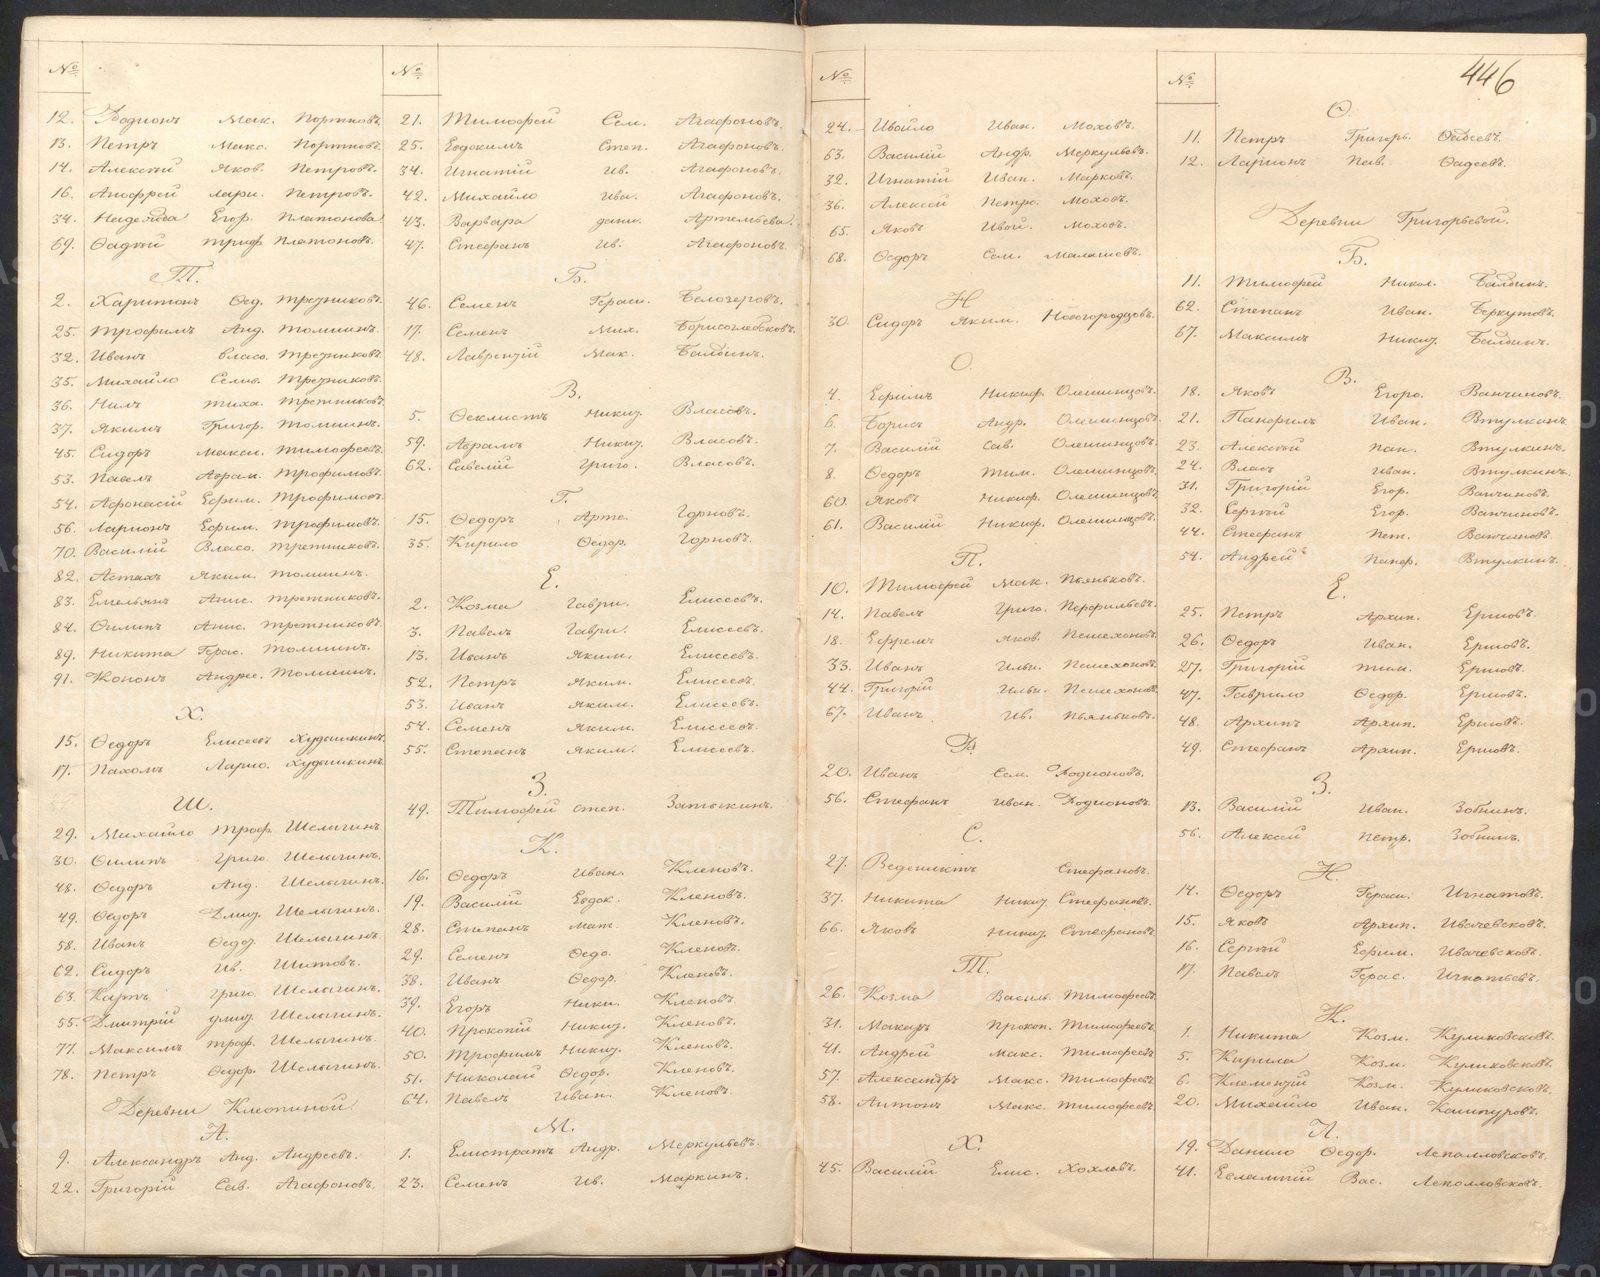 №
12. Родіонъ Мак. Портновъ.
13. Петръ Макс. Портновъ.
14. Алексѣй Яков. Петровъ.
16. Андрей Лари. Петровъ.
34. Надежда Егор. Платонова
69. Ѳадѣй Триф. Платоновъ.
Т.
2. Харитонъ Ѳед. Третниковъ.
25. Трофимъ Анд. Томшинъ.
32. Иванъ Власо. Третниковъ.
35. Михайло Селив. Третниковъ.
36. Нилъ Тиха. Третниковъ.
37. Якимъ Григор. Томшинъ.
45. Сидоръ Макси. Тимофеевъ.
53. Павелъ Аврам. Трофимовъ.
54. Афонасій Ефим. Трофимовъ.
56. Ларионъ Ефим. Трофимовъ.
70. Василій Власо. Третниковъ.
82. Астахъ Яким. Томшинъ.
83. Емельянъ Анис. Третниковъ.
84. Филипъ Анис. Третниковъ.
89. Никита Герас. Томшинъ.
91. Кононъ Андре. Томшинъ.
Х.
15. Ѳедоръ Елисеевъ Худышкинъ.
17. Пахомъ Ларио. Худышкинъ.
Ш.
29. Михайло Троф. Шелыгинъ.
30. Филипъ Григо. Шелыгинъ.
48. Ѳедоръ Анд. Шелыгинъ.
49. Ѳедоръ Дмит. Шелыгинъ.
58. Иванъ Ѳедо. Шелыгинъ.
62. Сидоръ Ив. Шитовъ.
63. Карпъ Григо. Шелыгинъ.
55. Дмитрій Дмит. Шелыгинъ.
77. Максимъ Троф. Шелыгинъ.
78. Петръ Ѳедор. Шелыгинъ.
Деревни Клеопиной.
А.
9. Александръ Анд. Андреевъ.
22. Григорій Сав. Агафоновъ.
№
21. Тимофей Сем. Агафоновъ.
25. Евдокимъ Степ. Агафоновъ.
34. Игнатій Ив. Агафоновъ.
42. Михайло Ива. Агафоновъ.
43. Варвара Дани. Артемьева.
47. Стефанъ Ив. Агафоновъ.
Б.
46. Семенъ Гераси. Белозеровъ.
17. Семенъ Мих. Борисоглебсковъ.
48. Лаврентій Мак. Балдинъ.
В.
5. Ѳеклистъ Никит. Власовъ.
59. Аврамъ Никит. Власовъ.
62. Савелій Григо. Власовъ.
Г.
15. Ѳедоръ Арте. Горновъ.
35. Кирило Ѳедор. Горновъ.
Е.
2. Козма Гаври. Елисеевъ.
3. Павелъ Гаври. Елисеевъ.
13. Иванъ Яким. Елисеевъ.
52. Петръ Яким. Елисеевъ.
53. Иванъ Яким. Елисеевъ.
54. Семенъ Яким. Елисеевъ.
55. Степанъ Яким. Елисеевъ.
З.
49. Тимофей Степ. Затыкинъ.
К.
16. Ѳедоръ Иван. Кленовъ.
19. Василій Евдок. Кленовъ.
28. Степанъ Мат. Кленовъ.
29. Семенъ Ѳедо. Кленовъ.
38. Иванъ Ѳедор. Кленовъ.
39. Егоръ Ники. Кленовъ.
40. Прокопій Никит. Кленовъ.
50. Трофимъ Никит. Кленовъ.
51. Николай Ѳедор. Кленовъ.
64. Павелъ Иван. Кленовъ.
М.
1. Елистратъ Андр. Меркульевъ.
23. Семенъ Ив. Маркинъ.
№
24. Ивойло Иван. Моховъ.
63. Василій Андр. Меркульевъ.
32. Игнатій Иван. Марковъ.
36. Алексей Петро. Моховъ.
65. Яковъ Ивой. Моховъ.
68. Ѳедоръ Сем. Малашевъ.
Н
30. Сидоръ Яким. Новогородцовъ.
О.
4. Ефимъ Никиф. Олешинцовъ.
6. Борисъ Андр. Олешинцовъ.
7. Василій Сав. Олешинцовъ.
8. Ѳедоръ Тим. Олешинцовъ.
60. Яковъ Никиф. Олешинцовъ.
61. Василій Никиф. Олешинцовъ.
П.
10. Тимофей Мак. Пьянковъ.
14. Павелъ Григо. Перфильевъ.
18. Ефремъ Яков. Пешехоновъ.
33. Иванъ Ильи. Пешехоновъ.
44. Григорій Ильи. Пешехоновъ.
67. Иванъ Ив. Пьянковъ.
Р.
20. Иванъ Сем. Родионовъ.
56. Стефанъ Иван. Родионовъ.
С.
27. Ведениктъ Стефановъ.
37. Никита Никит. Стефановъ.
66. Яковъ Никит. Стефановъ.
Т.
26. Козма Василь. Тимофеевъ.
31. Макаръ Прокоп. Тимофеевъ.
41. Андрей Макс. Тимофеевъ.
57. Александръ Макс. Тимофеевъ.
58. Антонъ Макс. Тимофеевъ.
Х.
45. Василій Елис. Хохловъ.
446
№
Ѳ.
11. Петръ Григорь. Ѳадѣевъ.
12. Ларионъ Пав. Ѳадеевъ.
Деревни Григорьевой.
Б.
11. Тимофей Никол. Балдинъ.
62. Степанъ Иван. Беркутовъ.
67. Максимъ Никит. Балдинъ.
В.
18. Яковъ Егоро. Ванчиновъ.
21. Панфилъ Иван. Втулкинъ.
23. Алексѣй Пан. Втулкинъ.
24. Власъ Иван. Втулкинъ.
31. Григорій Егор. Ванчиновъ.
32. Сергѣй Егор. Ванчиновъ.
44. Стефанъ Пет. Ванчиновъ.
54. Андрей Панф. Втулкинъ.
Е.
25. Петръ Архип. Ершовъ.
26. Ѳедоръ Иван. Ершовъ.
27. Григорій Тим. Ершовъ.
47. Гаврило Ѳедор. Ершовъ.
48. Архипъ Архип. Ершовъ.
49. Стефанъ Архип. Ершовъ.
З.
13. Василій Иван. Зобнинъ.
56. Алексей Петр. Зобнинъ.
И.
14. Ѳедоръ Гераси. Игнатовъ.
15. Яковъ Архип. Ивачевсковъ.
16. Сергѣй Ефим. Ивачевсковъ.
17. Павелъ Герас. Игнатьевъ.
К.
1. Никита Козм. Куликовсковъ.
5. Кирила Козм. Куликовсковъ.
6. Климентій Козм. Куликовсковъ.
20. Михайло Иван. Кашпуровъ.
Л.
19. Данило Ѳедор. Леполловсковъ.
41. Евлампій Вас. Леполловсковъ.